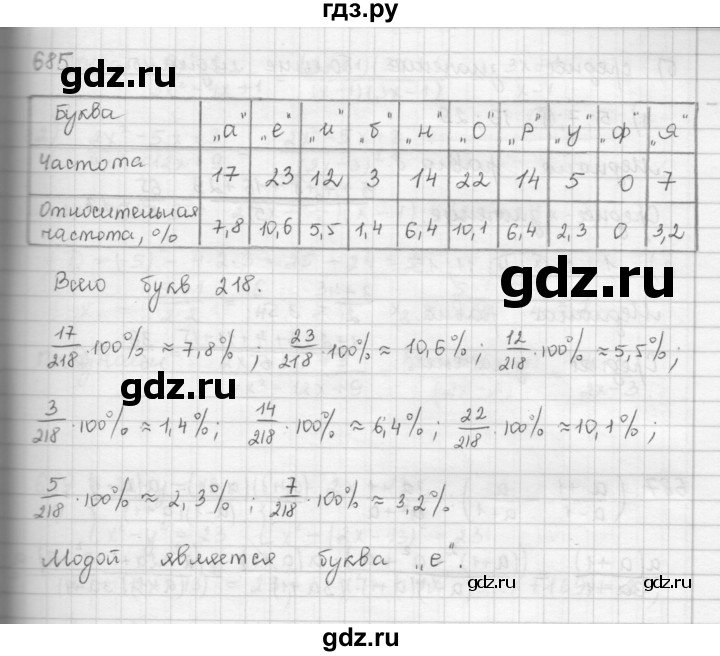 гдз.ру
685
gdz.ru
Буква „а" „е" „и" „б" „н" „о" „р" „у" „ф" „я"
Частота 17 23 12 3 14 22 14 5 0 7
Относительная частота, % 7,8 10,6 5,5 1,4 6,4 10,1 6,4 2,3 0 3,2
Всего букв 218.
gdz.ru
17/218 · 100% ≈ 7,8% ; 23/218 · 100% ≈ 10,6% ; 12/218 · 100% ≈ 5,5% ;
gdz.ru
3/218 · 100% ≈ 1,4% ; 14/218 · 100% ≈ 6,4% ; 22/218 · 100% ≈ 10,1% ;
5/218 · 100% ≈ 2,3% ; 7/218 · 100% ≈ 3,2%.
gdz.ru
Модой является буква „е".
gdz.ru
gdz.ru
gdz.ru